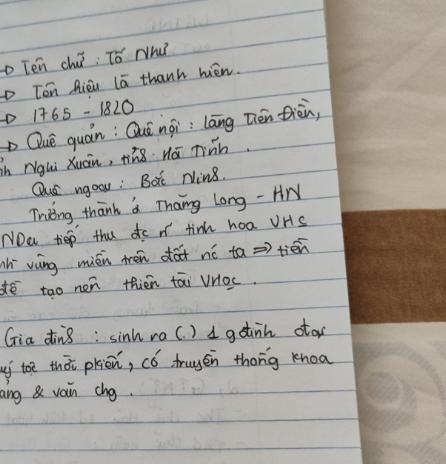 → Tên chữ : Tố Như
→ Tên hiệu là thanh hiên.
→ 1765 - 1820
→ Quê quán : Quê nội : làng Tiên Điền,
Nghi Xuân, tỉn8 Hà Tĩnh .
Quê ngoại : Bắc Nin8.
Trưởng thành ở Thăng Long - HN
NDu tiếp thu đc n tinh hoa VH
vùng miền trên đất nc ta ⇒ tiền
đề tạo nên thiên tài VHọc .
Gia đìn8 : sinh ra (.) 1 gđình đại
quý tộc thời pkiến, có truyền thống khoa
bảng & văn chg .